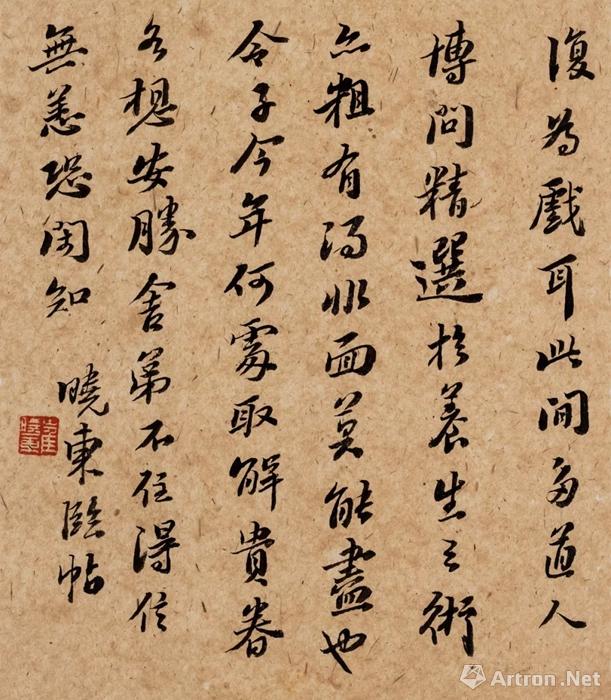 復為戲耳此間多道人
博問精選於養生之術
亦粗有得非面莫能盡也
令子今年何處取解貴眷
各想安勝舍弟不住得信
無恙恐聞知
曉東臨帖
Artron.Net